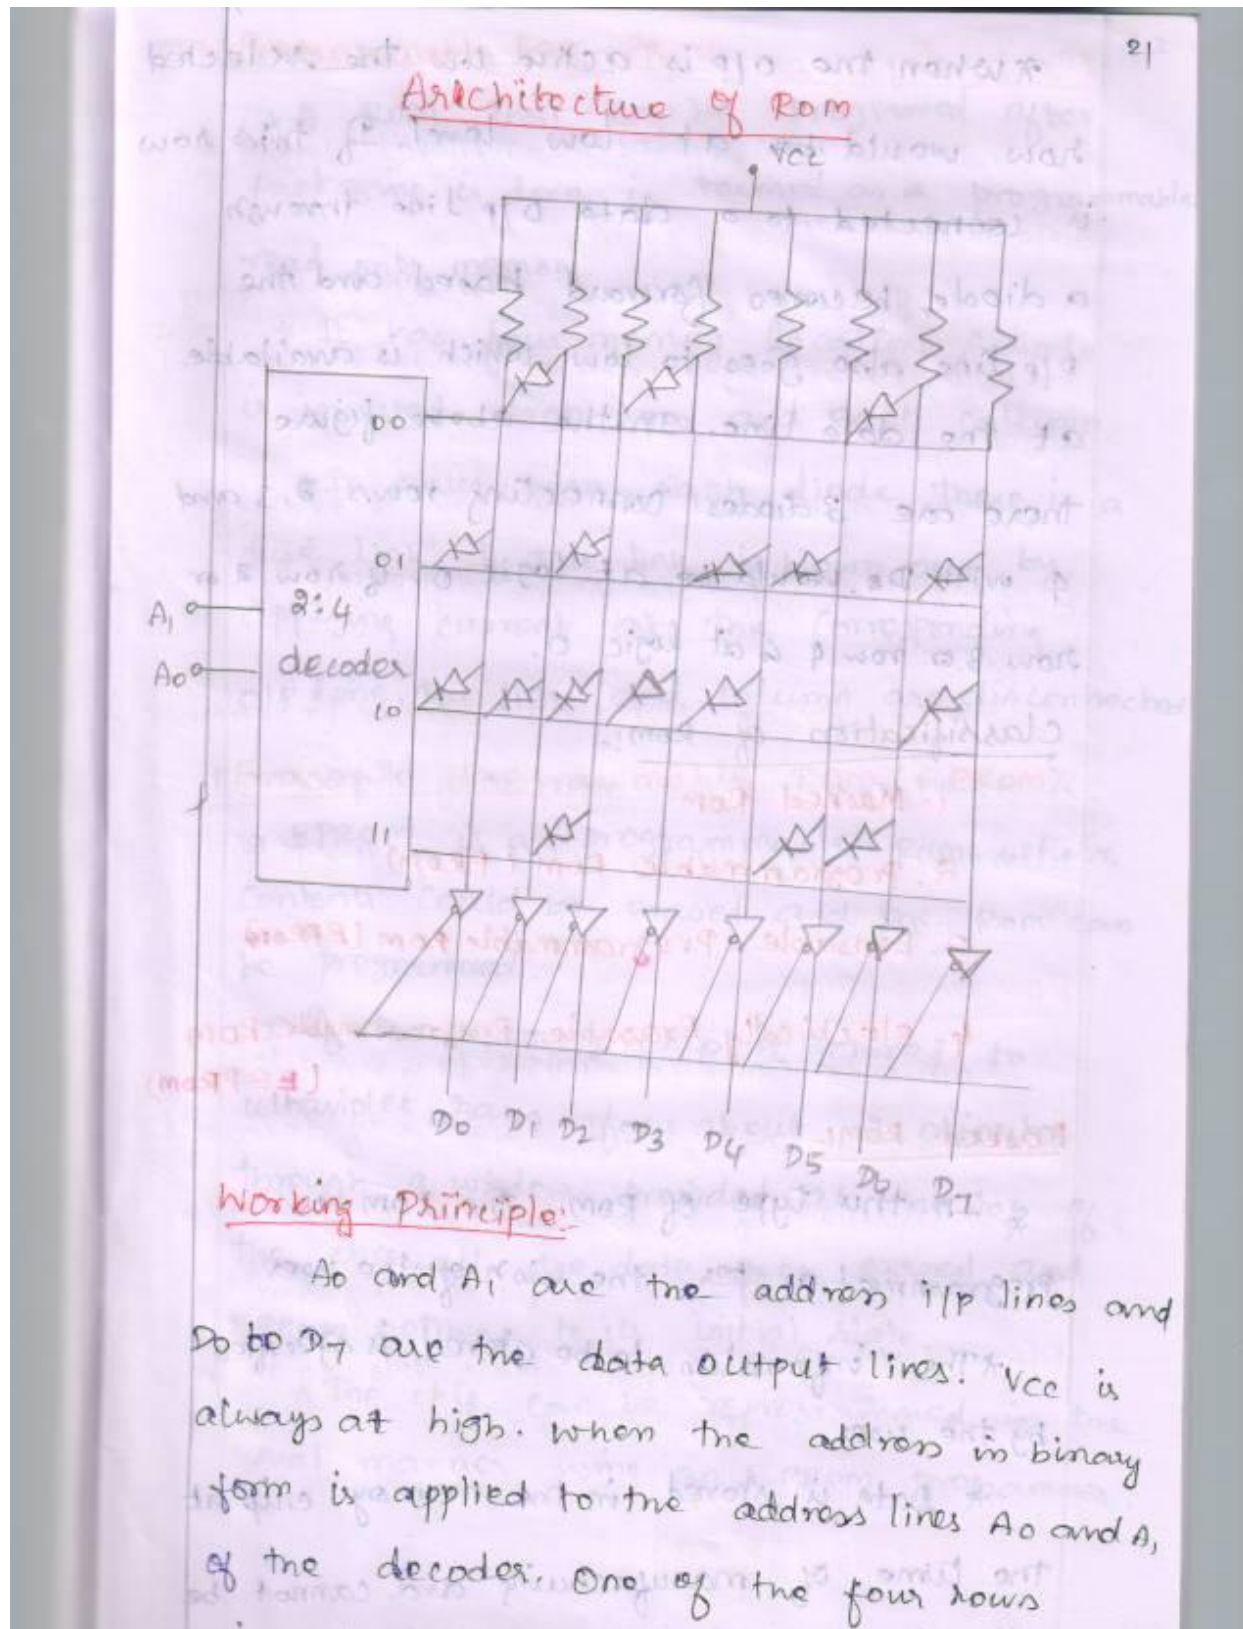 21
Architecture of ROM
Vcc
00
01
A1
2:4
A0
decoder
10
11
D0 D1 D2 D3 D4 D5 D6 D7
Working Principle:
A0 and A1 are the address i/p lines and
D0 to D7 are the data output lines. Vcc is
always at high. when the address in binary
form is applied to the address lines A0 and A1
of the decoder. One of the four rows